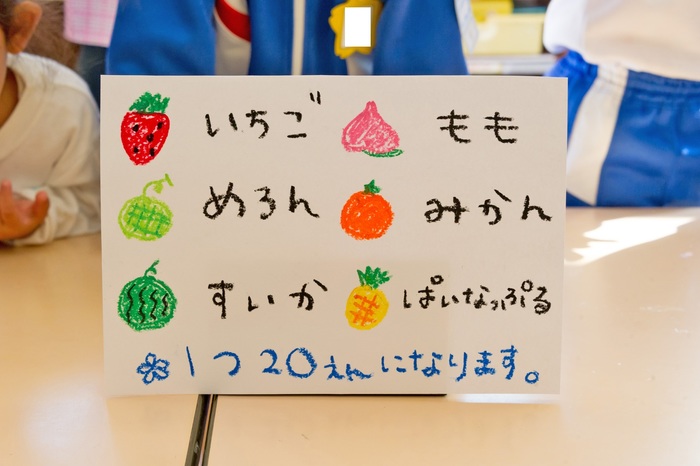 いちご もも
めろん みかん
すいか ぱいなっぷる
1つ20えんになります。